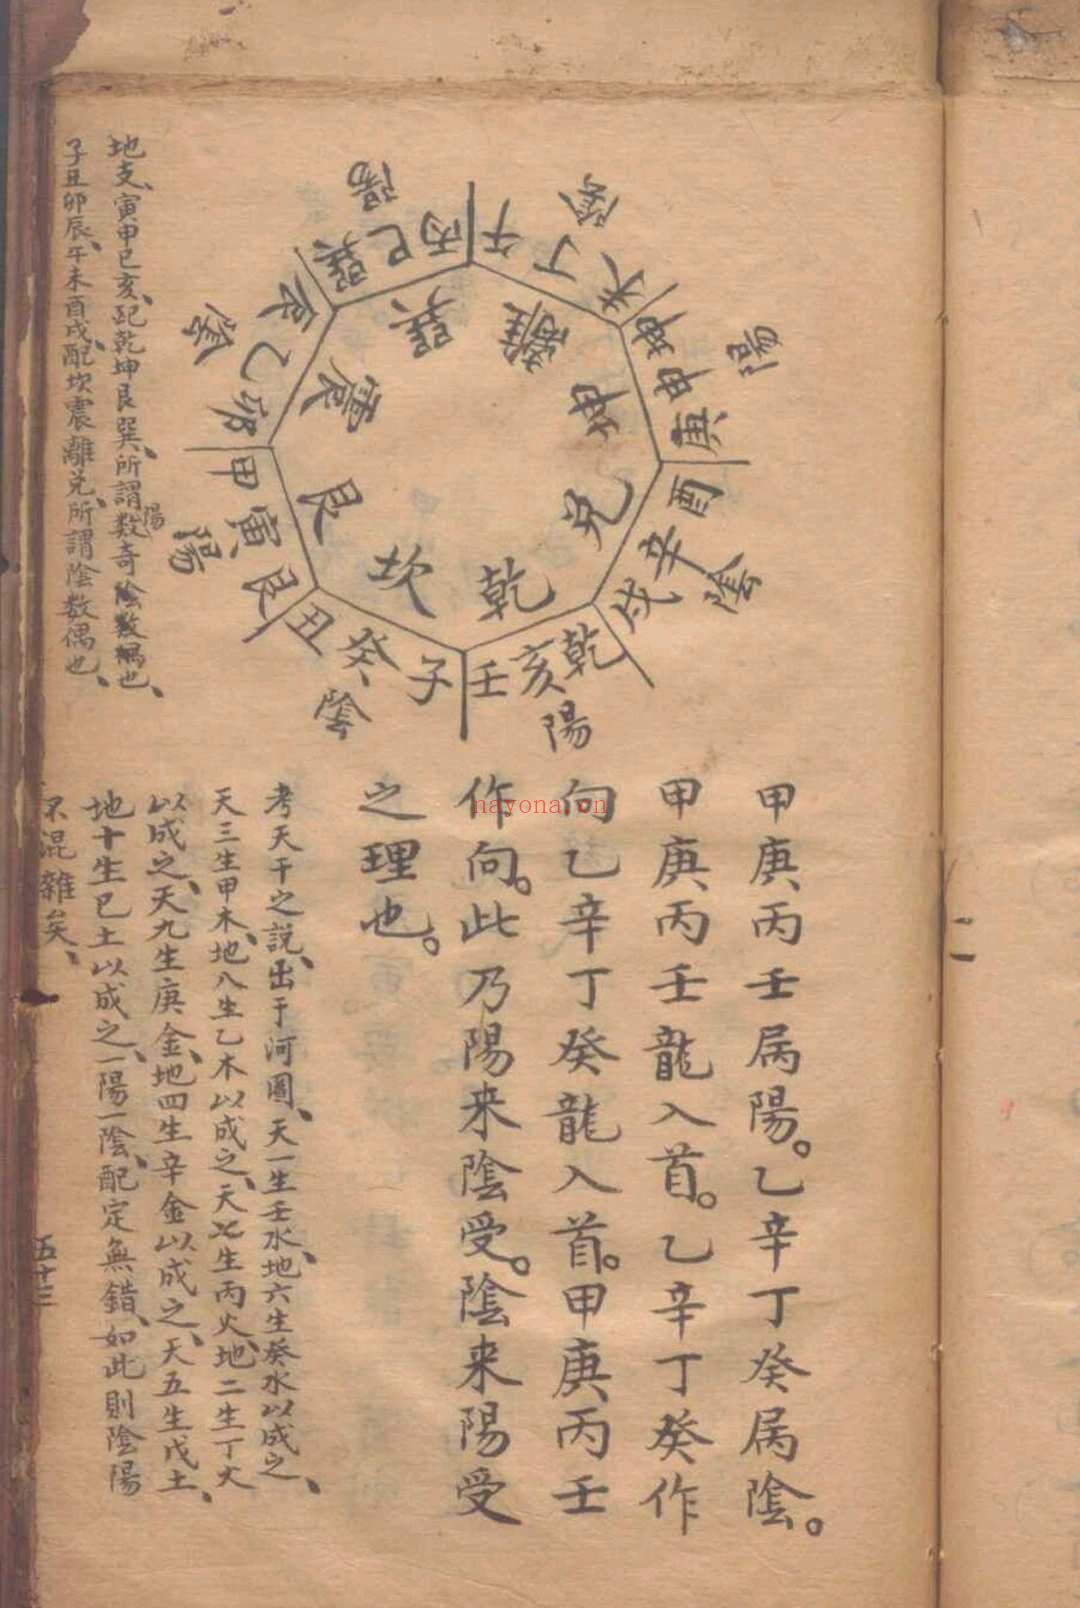 甲庚丙壬属陽。乙辛丁癸属陰。
甲庚丙壬龍入首。乙辛丁癸作
向乙辛丁癸龍入首。甲庚丙壬
作向。此乃陽来陰受。陰来陽受
之理也。
考天干之説、出于河圖、天一生壬水、地六生癸水以成之、
天三生甲木、地八生乙木以成之、天七生丙火、地二生丁火
以成之、天九生庚金、地四生辛金以成之、天五生戊土、
地十生己土以成之、一陽一陰、配定無錯、如此則陰陽
不混雜矣、
地支、寅申巳亥、配乾坤艮巽、所謂数奇陰数偶也、
陽
子丑卯辰、午未酉戌、配坎震離兑、所謂陰数偶也、
離
坤
兑
乾
坎
艮
震
巽
午丁未
陰
坤申庚
陽
酉辛戌
陰
乾亥壬
陽
子癸丑
陰
艮寅甲
陽
卯乙辰
陰
巽巳丙
陽
二
五十三
nayona.cn